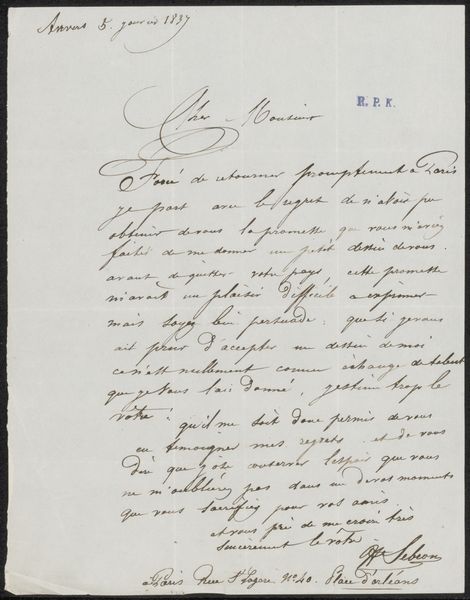 Anvers 5 janvier 1837
R. P. K.
Cher Monsieur
Forcé de retourner promptement a Paris
je part avec le regret de n'avoir pu
obtenir de vous la promette que vous m'avez
faites de me donner un petit dessin de vous.
avant de quitter votre pays, cette promette
m'avait un plaisir difficile a exprimer
mais soyez bien persuadé que si je vous
ait prier d'accepter un dessin de moi
ce n'est nullement comme échange de talent
que je vous l'ai donné, j'estime trop le
vôtre! qu'il me soit donc permis de vous
en temoigner mes regrets et de vous
dire que j'ose conserver l'espoir que vous
ne m'oublierez pas dans un de vos moments
que vous sacrifiez pour vos amis.
et vous prie de me croire très
sincerement le vôtre
Hte Sebron
a Paris Rue St Lazare No 40. Place d'orléans